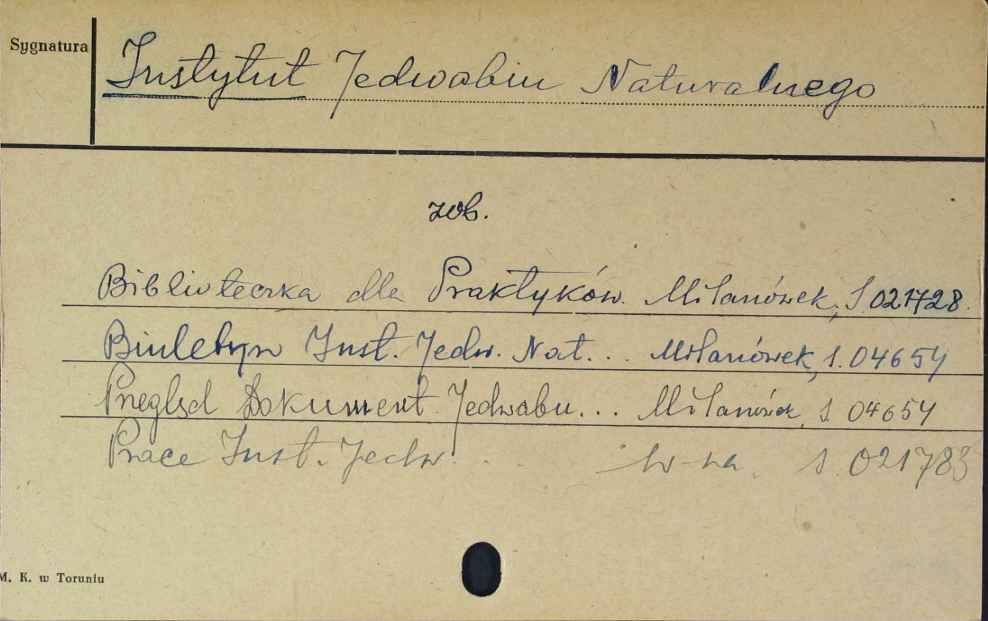 Sygnatura
Instytut Jedwabiu Naturalnego
zob.
Biblioteczka dla Praktyków. Milanówek, S 021728.
Biuletyn Inst. Jedw. Nat... Milanówek, S. 04654
Przegląd Dokument. Jedwabu... Milanówek, S 04654
Prace Inst. Jedw... W-wa, S. 021783
M. K. w Toruniu